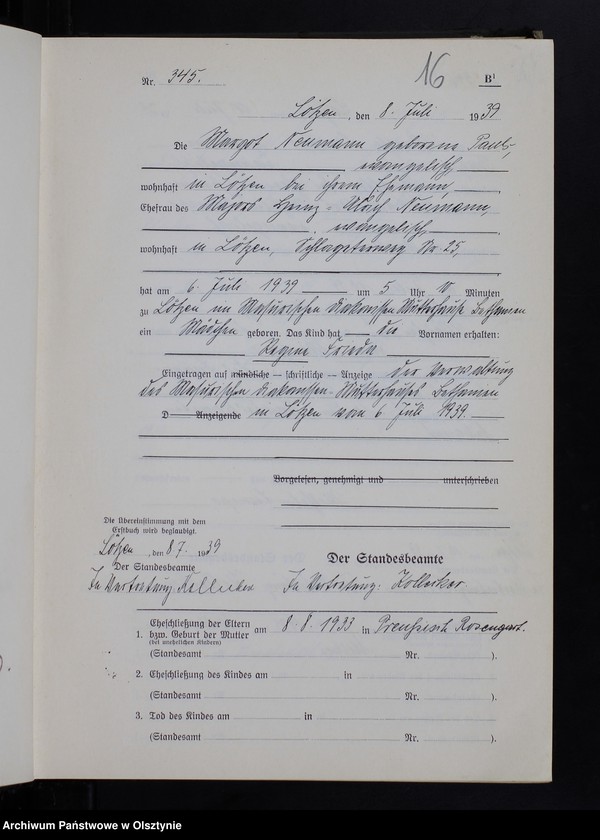 16
Nr. 345. B¹
Lötzen, den 8. Juli 1939
Die Margot Neumann geborene Pauls,
evangelisch
wohnhaft in Lötzen bei ihrem Ehemann,
Ehefrau des Majors Heinz-Ulrich Neumann,
, evangelisch,
wohnhaft in Lötzen, Schlageterweg Nr 25,
hat am 6. Juli 1939 um 5 Uhr 10 Minuten
zu Lötzen im Masurischen Diakonissen Mutterhause Bethanien
ein Mädchen geboren. Das Kind hat die Vornamen erhalten:
Regine Frieda
Eingetragen auf mündliche — schriftliche — Anzeige der Verwaltung
des Masurischen Diakonissen-Mutterhauses Bethanien
D Anzeigende in Lötzen vom 6 Juli 1939.
Vorgelesen, genehmigt und unterschrieben
Die Übereinstimmung mit dem
Erstbuch wird beglaubigt.
Lötzen, den 8 7. 1939
Der Standesbeamte
In Vertretung:
Der Standesbeamte
In Vertretung:
Eheschließung der Eltern
1. bzw. Geburt der Mutter am 8. 8. 1933 in Preußisch Rosengart.
(bei unehelichen Kindern)
(Standesamt Nr. ).
2. Eheschließung des Kindes am in
(Standesamt Nr. ).
3. Tod des Kindes am in
(Standesamt Nr. ).
Archiwum Państwowe w Olsztynie